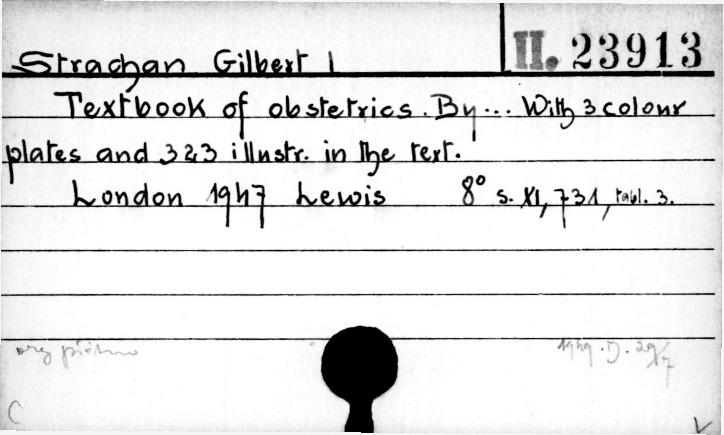 II. 23913
Strachan Gilbert I
Textbook of obstetrics. By ... With 3 colour
plates and 323 illustr. in the text.
London 1947 Lewis 8° s. XI, 731, tabl. 3.
1949. D. 29/7
C
V